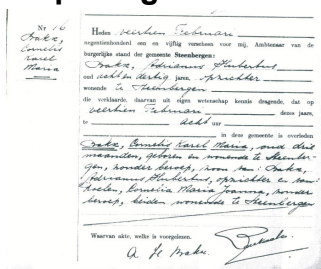 Nr 16
Bakx,
Cornelis
Karel
Maria
Heden veertien Februari
negentienhonderd een en vijftig verscheen voor mij, Ambtenaar van de
burgerlijke stand der gemeente Steenbergen:
Bakx, Adrianus Hubertus
oud acht en dertig jaren, opzichter
wonende te Steenbergen
die verklaarde, daarvan uit eigen wetenschap kennis dragende, dat op
veertien Februari dezes jaars,
te acht uur
in deze gemeente is overleden
Bakx, Cornelis Karel Maria, oud drie
maanden, geboren en wonende te Steenber-
gen, zonder beroep, zoon van: Bakx,
Adrianus Hubertus, opzichter en van:
Cornelia Maria Joanna, zonder
beroep, beiden wonende te Steenbergen
Waarvan akte, welke is voorgelezen.
A H Bakx